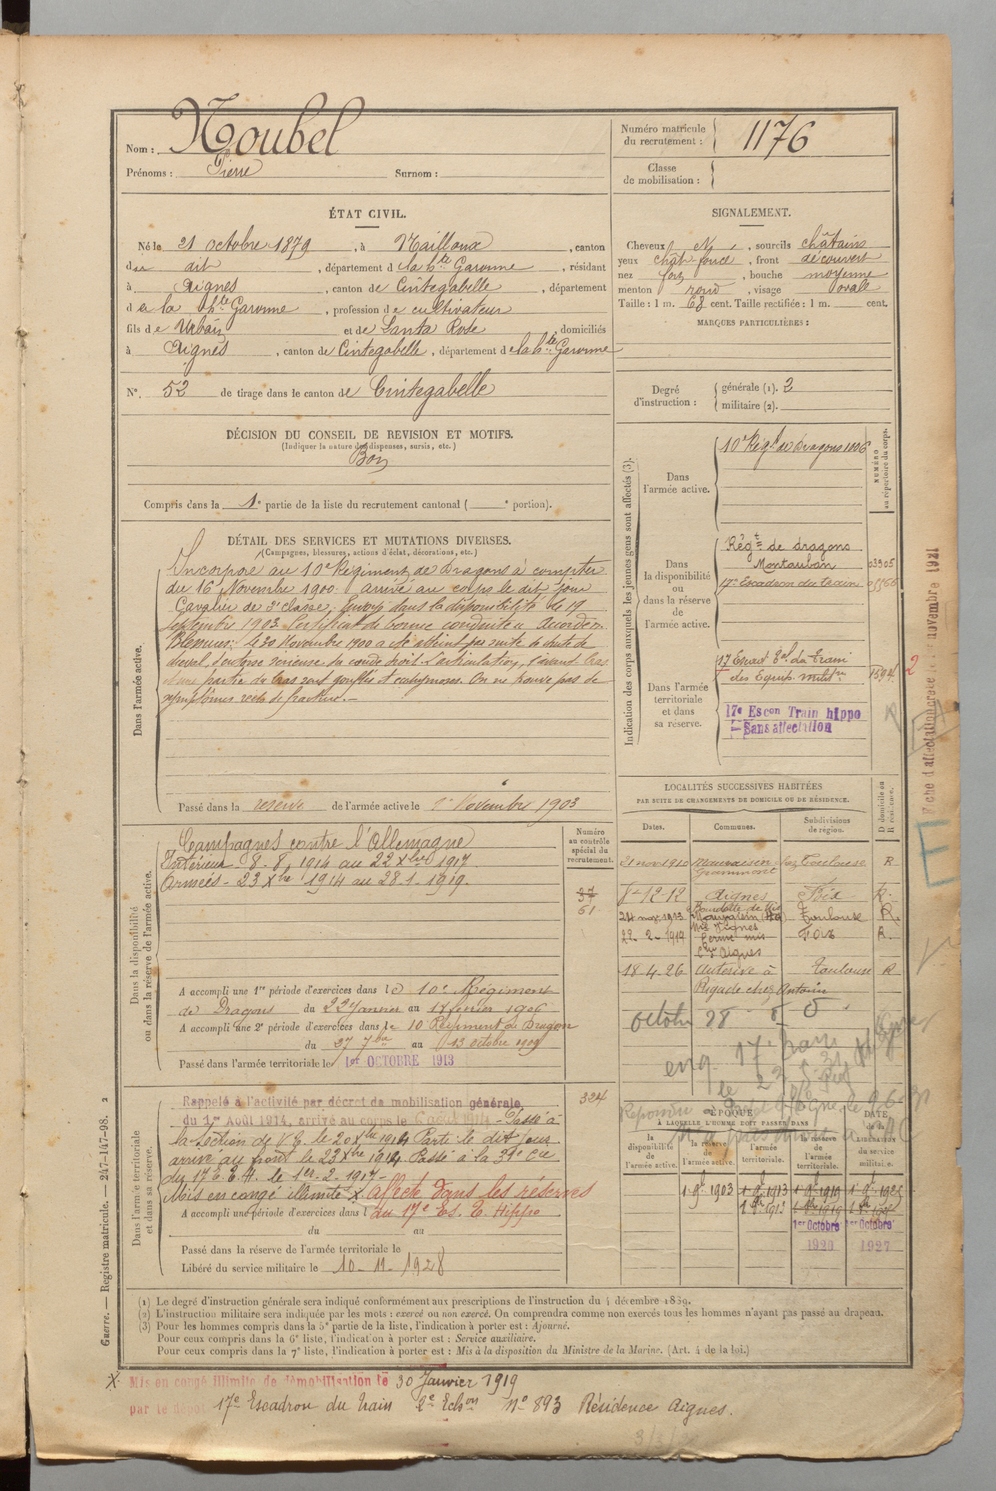 Nom : Noubel
Prénoms : Pierre Surnom :
Numéro matricule du recrutement : 1176
Classe de mobilisation :
ÉTAT CIVIL.
Né le 21 octobre 1879, à Nailloux, canton
du dit, département de la hte Garonne, résidant
à Aignes, canton de Cintegabelle, département
de la hte Garonne, profession de cultivateur
fils de Urbain et de Santa Rose, domiciliés
à Aignes, canton de Cintegabelle, département de la hte Garonne
N°. 52 de tirage dans le canton de Cintegabelle
SIGNALEMENT.
Cheveux N, sourcils châtains
yeux chât foncé, front découvert
nez , bouche moyenne
menton rond, visage ovale
Taille : 1 m. 68 cent. Taille rectifiée : 1 m. cent.
MARQUES PARTICULIÈRES :
Degré d'instruction : générale (1). 2
militaire (2).
DÉCISION DU CONSEIL DE REVISION ET MOTIFS.
(Indiquer la nature des dispenses, sursis, etc.)
Bon
Compris dans la 1e partie de la liste du recrutement cantonal ( e portion).
DÉTAIL DES SERVICES ET MUTATIONS DIVERSES.
(Campagnes, blessures, actions d'éclat, décorations, etc.)
Dans l'armée active.
Incorporé au 10e Régiment de Dragons à compter
du 16 Novembre 1900. arrivé au corps le dit jour
Cavalier de 2e classe. Envoyé dans la disponibilité le 19
septembre 1903. Certificat de bonne conduite : Accordé.
Blessures : le 30 Novembre 1900 a été atteint par suite de chute de
cheval, d'entorse sérieuse du coude droit. L'articulation, l'avant bras
et une partie du bras sont gonflés et ecchymosés. On ne trouve pas de
symptômes réels de fracture.-
Passé dans la réserve de l'armée active le 1er Novembre 1903
Indication des corps auxquels les jeunes gens sont affectés (3).
NUMÉRO au répertoire du corps.
Dans l'armée active.
10e Régt de Dragons 1006
Dans la disponibilité ou dans la réserve de l'armée active.
Régt de dragons
Montauban 03305
17e Escadron du train
Dans l'armée territoriale et dans sa réserve.
17 Escad du Train
des Equip. milit.res 1594
17e Escon Train hippo
Sans affectation
Fiche d'affectation créée le 1er novembre 1921
2
Dans la disponibilité ou dans la réserve de l'armée active.
Numéro au contrôle spécial du recrutement.
Campagnes contre l'Allemagne
Intérieur - 8-8-1914 au 22 Xbre 1914
Armées - 23 Xbre 1914 au 28-1-1919.
37
61
A accompli une 1re période d'exercices dans le 10e Régiment
de Dragons du 22 Janvier au 17 février 1906
A accompli une 2e période d'exercices dans le 10 Régiment de Dragon
du 27 7bre au 13 octobre 1909
Passé dans l'armée territoriale le 1er OCTOBRE 1913
LOCALITÉS SUCCESSIVES HABITÉES
PAR SUITE DE CHANGEMENTS DE DOMICILE OU DE RÉSIDENCE.
Dates. Communes. Subdivisions de région. D domicile ou R résidence.
21 nov 1910 Toulouse R.
8-12-12 Aignes Foix R.
24 nov. 1913 Toulouse R.
22-2-1919 Foix R.
Cne d'Aignes
18-4-26 Auterive à Toulouse R
octobre 28
Dans l'armée territoriale et dans sa réserve.
Rappelé à l'activité par décret de mobilisation générale
du 1er Août 1914, arrivé au corps le août 1914 - Passé à
la Section de V. F. le 20 Xbre 1914 Parti le dit jour
arrivé au front le 23 Xbre 1914 Passé à la 39e Cie
du 17e E. M. le 1er-2-1917-
Mis en congé illimité X affecté dans les réserves
A accompli une période d'exercices dans l au 17e Es. E. Hippo
du au
324
Passé dans la réserve de l'armée territoriale le
Libéré du service militaire le 10-11-1928
ÉPOQUE
À LAQUELLE L'HOMME DOIT PASSER DANS
DATE de la LIBÉRATION du service militaire.
la disponibilité de l'armée active. la réserve de l'armée active. l'armée territoriale. la réserve de l'armée territoriale.
1 9bre 1903 1 9bre 1913 1 9bre 1919
1er Octobre 1er Octobre
1920 1927
(1) Le degré d'instruction générale sera indiqué conformément aux prescriptions de l'instruction du 4 décembre 1889.
(2) L'instruction militaire sera indiquée par les mots : exercé ou non exercé. On comprendra comme non exercés tous les hommes n'ayant pas passé au drapeau.
(3) Pour les hommes compris dans la 5e partie de la liste, l'indication à porter est : Ajourné.
Pour ceux compris dans la 6e liste, l'indication à porter est : Service auxiliaire.
Pour ceux compris dans la 7e liste, l'indication à porter est : Mis à la disposition du Ministre de la Marine. (Art. 4 de la loi.)
Guerre. — Registre matricule. — 247-147-98. 2
X. Mis en congé illimité de démobilisation le 30 Janvier 1919
par le dépôt 17e Escadron du train 2e Echon No 893 Résidence Aignes.